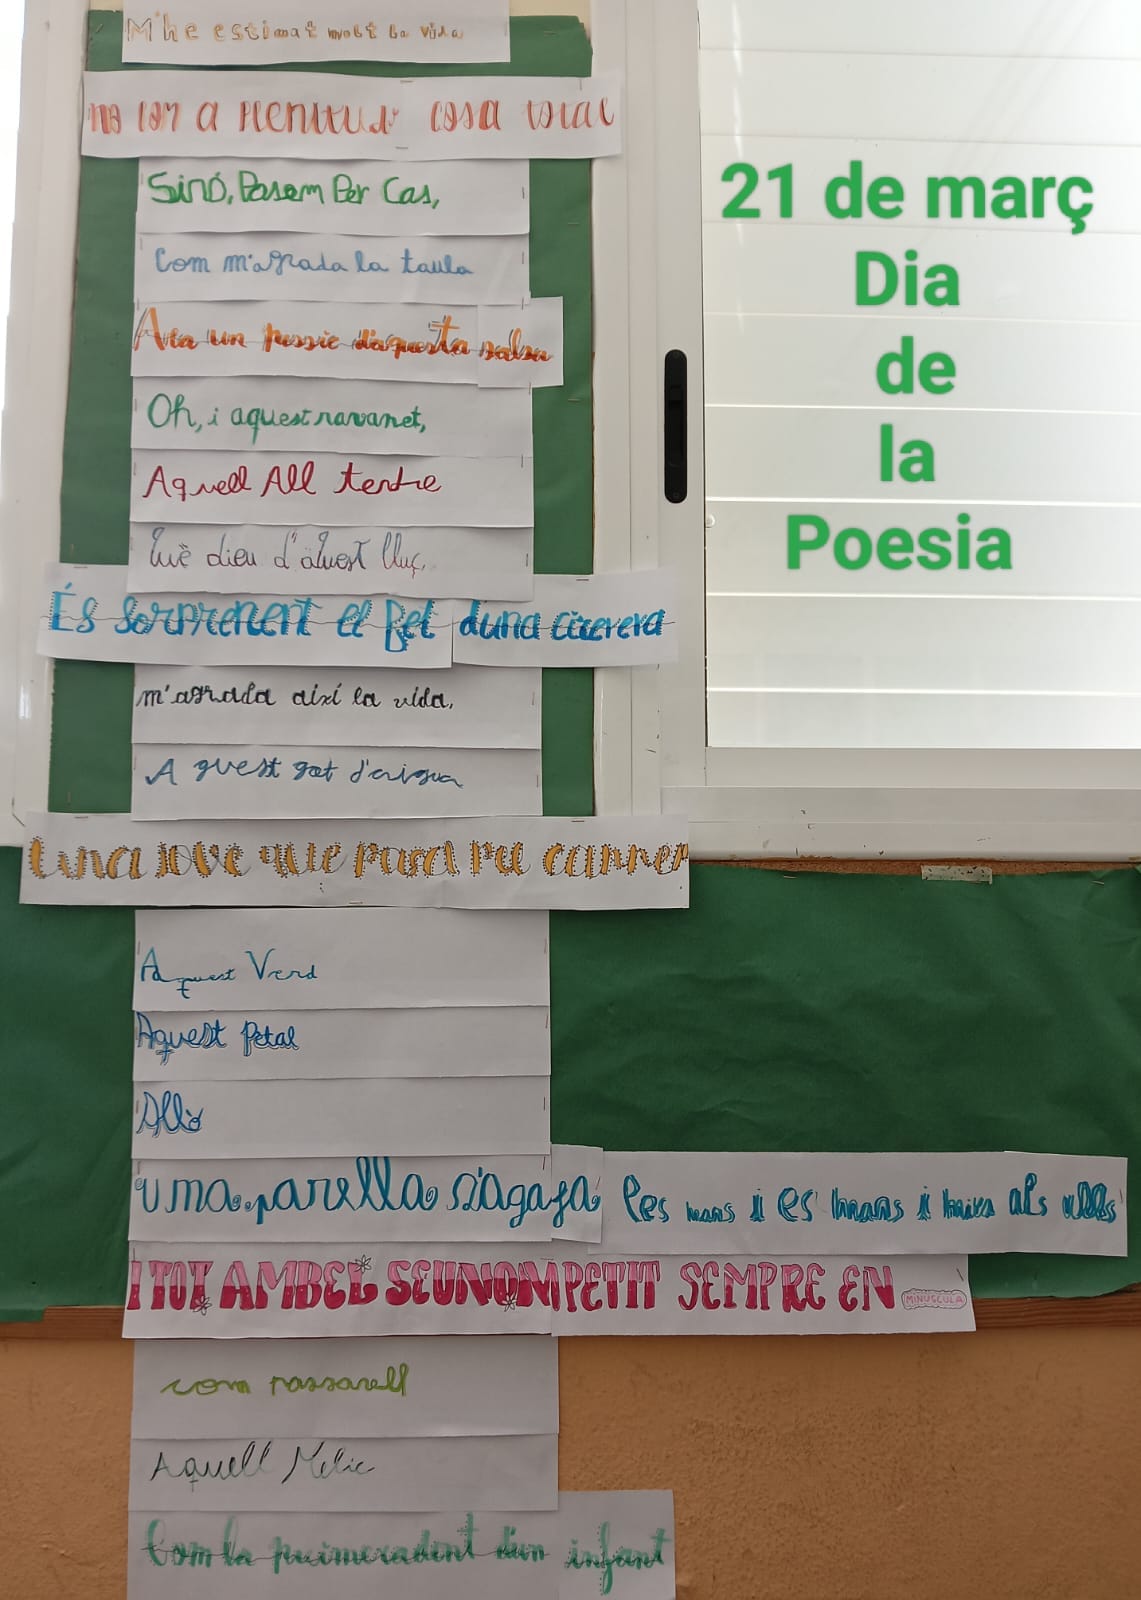 M'he estimat molt la vida
no com a plenitud cosa total
Sinó, Posem Per Cas,
Com m'agrada la taula
Ara un pessic d'aquesta salsa
Oh, i aquest ravanet,
Aquell All tendre
Què dieu d'aquest lluç,
És sorprenent el fet duna cirerera
m'agrada així la vida,
Aquest got d'aigua
Una jove que pasa pel carrrer
Aquest Verd
Aquest Petal
Allò
una parella s'agafa les mans i es
mans i mira als ulls
I TOT AMBEL SEUNOM PETIT SEMPRE EN MINÚSCULA
com passarell
Aquell Melic
Com la primeradent d'un infant
21 de març
Dia
de
la
Poesia